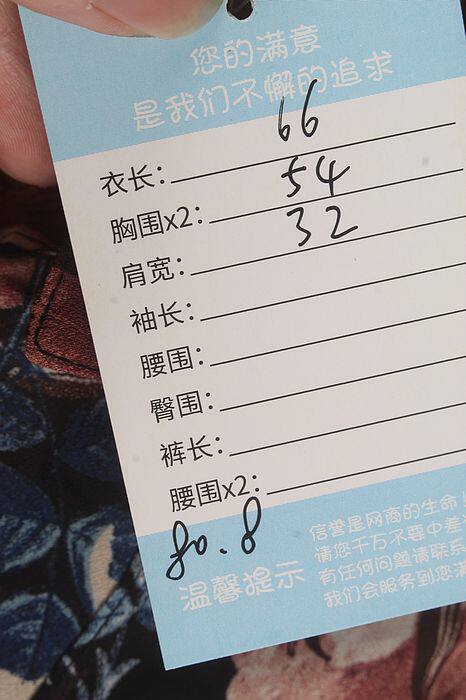 您的满意
是我们不懈的追求
衣长: 66
胸围x2: 54
肩宽: 32
袖长:
腰围:
臀围:
裤长:
腰围x2:
80.8
温馨提示
信誉是网商的生命
请您千万不要中差
有任何问题请联系
我们会服务到您满